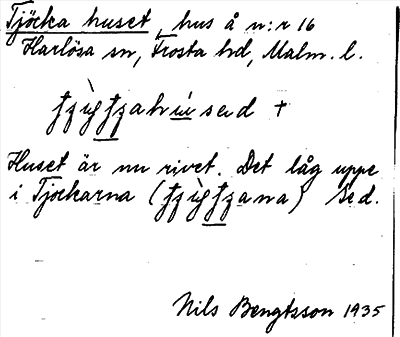 Tjöcka huset, hus å n:r 16
Harlösa sn, Frosta hd, Malm. l.
sed +
Huset är nu rivet. Det låg uppe
i Tjockarna ( ) se d.
Nils Bengtsson 1935